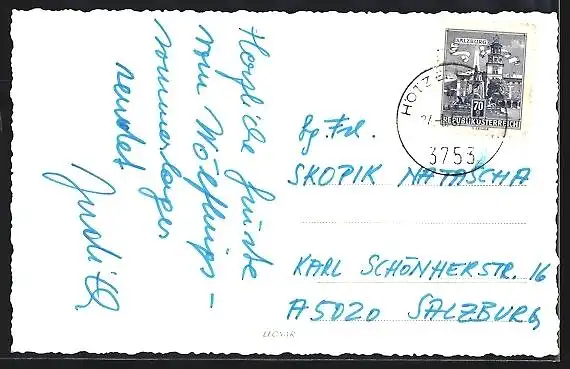 Herzliche Grüße
vom Wölflings-
sommerlager
sendet
Judith
SALZBURG
70
REPUBLIK ÖSTERREICH
HOTZE
3753
Lg. Frl.
SKOPIK NATASCHA
KARL SCHÖNHERSTR. 16
A5020 SALZBURG